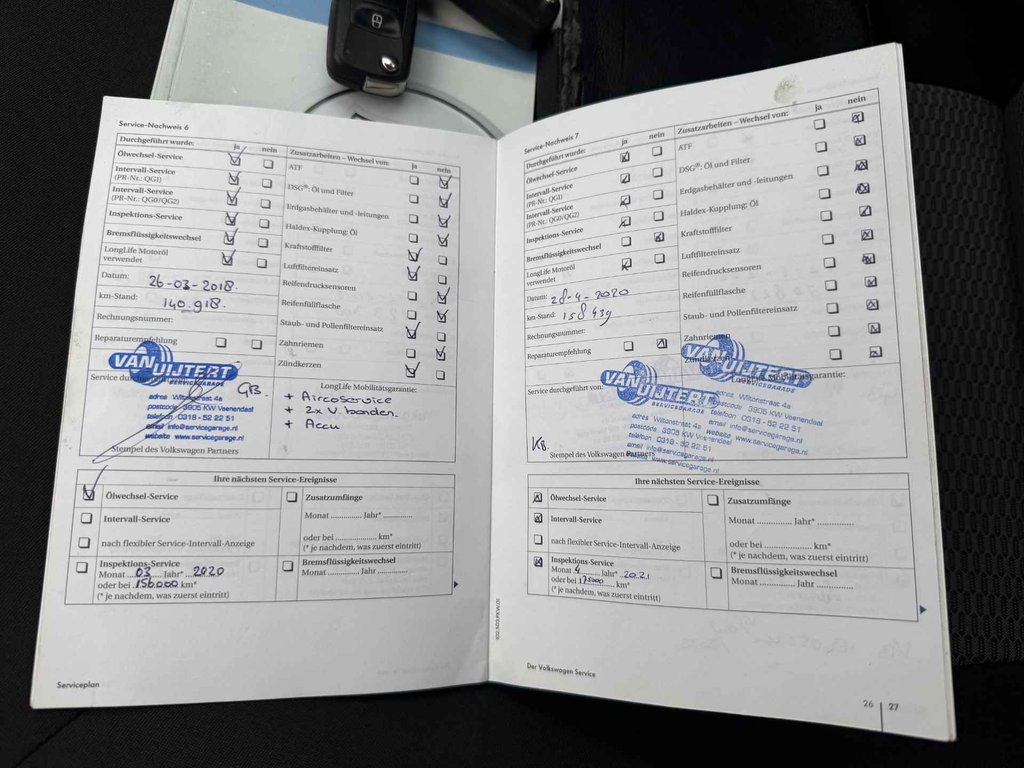 Service-Nachweis 6
Durchgeführt wurde: ja nein
Ölwechsel-Service
Intervall-Service
(PR-Nr.: QG1)
Intervall-Service
(PR-Nr.: QG0/QG2)
Inspektions-Service
Bremsflüssigkeitswechsel
LongLife Motoröl
verwendet
Datum: 26-03-2018.
km-Stand: 140.918.
Rechnungsnummer:
Reparaturempfehlung
Zusatzarbeiten – Wechsel von: ja nein
ATF
DSG®: Öl und Filter
Erdgasbehälter und -leitungen
Haldex-Kupplung: Öl
Kraftstofffilter
Luftfiltereinsatz
Reifendrucksensoren
Reifenfüllflasche
Staub- und Pollenfiltereinsatz
Zahnriemen
Zündkerzen
VAN UIJTERT
SERVICEGARAGE
Service
GB
adres Wiltonstraat 4a
postcode 3905 KW Veenendaal
telefoon 0318 - 52 22 51
email info@servicegarage.nl
website www.servicegarage.nl
Stempel des Volkswagen Partners
LongLife Mobilitätsgarantie:
+ Aircoservice
+ 2x V. banden.
+ Accu
Ihre nächsten Service-Ereignisse
Ölwechsel-Service
Intervall-Service
nach flexibler Service-Intervall-Anzeige
Inspektions-Service
Monat 03 Jahr* 2020
oder bei 156.000 km*
(* je nachdem, was zuerst eintritt)
Zusatzumfänge
Monat ............... Jahr* ...............
oder bei ............... km*
(* je nachdem, was zuerst eintritt)
Bremsflüssigkeitswechsel
Monat ............... Jahr ...............
Serviceplan
Service-Nachweis 7
Durchgeführt wurde: ja nein
Ölwechsel-Service
Intervall-Service
(PR-Nr.: QG1)
Intervall-Service
(PR-Nr.: QG0/QG2)
Inspektions-Service
Bremsflüssigkeitswechsel
LongLife Motoröl
verwendet
Datum: 28-4-2020
km-Stand: 158439
Rechnungsnummer:
Reparaturempfehlung
Zusatzarbeiten – Wechsel von: ja nein
ATF
DSG®: Öl und Filter
Erdgasbehälter und -leitungen
Haldex-Kupplung: Öl
Kraftstofffilter
Luftfiltereinsatz
Reifendrucksensoren
Reifenfüllflasche
Staub- und Pollenfiltereinsatz
Zahnriemen
VAN UIJTERT
SERVICEGARAGE
Service durchgeführt von:
VAN UIJTERT
SERVICEGARAGE
adres Wiltonstraat 4a
postcode 3905 KW Veenendaal
telefoon 0318 - 52 22 51
email info@servicegarage.nl
website www.servicegarage.nl
adres Wiltonstraat 4a
postcode 3905 KW Veenendaal
telefoon 0318 - 52 22 51
email info@servicegarage.nl
www.servicegarage.nl
KB.
Stempel des Volkswagen Partners
Ihre nächsten Service-Ereignisse
Ölwechsel-Service
Intervall-Service
nach flexibler Service-Intervall-Anzeige
Inspektions-Service
Monat 4 Jahr* 2021
oder bei 175000 km*
(* je nachdem, was zuerst eintritt)
Zusatzumfänge
Monat ............... Jahr* ...............
oder bei ............... km*
(* je nachdem, was zuerst eintritt)
Bremsflüssigkeitswechsel
Monat ............... Jahr ...............
Der Volkswagen Service
26 | 27